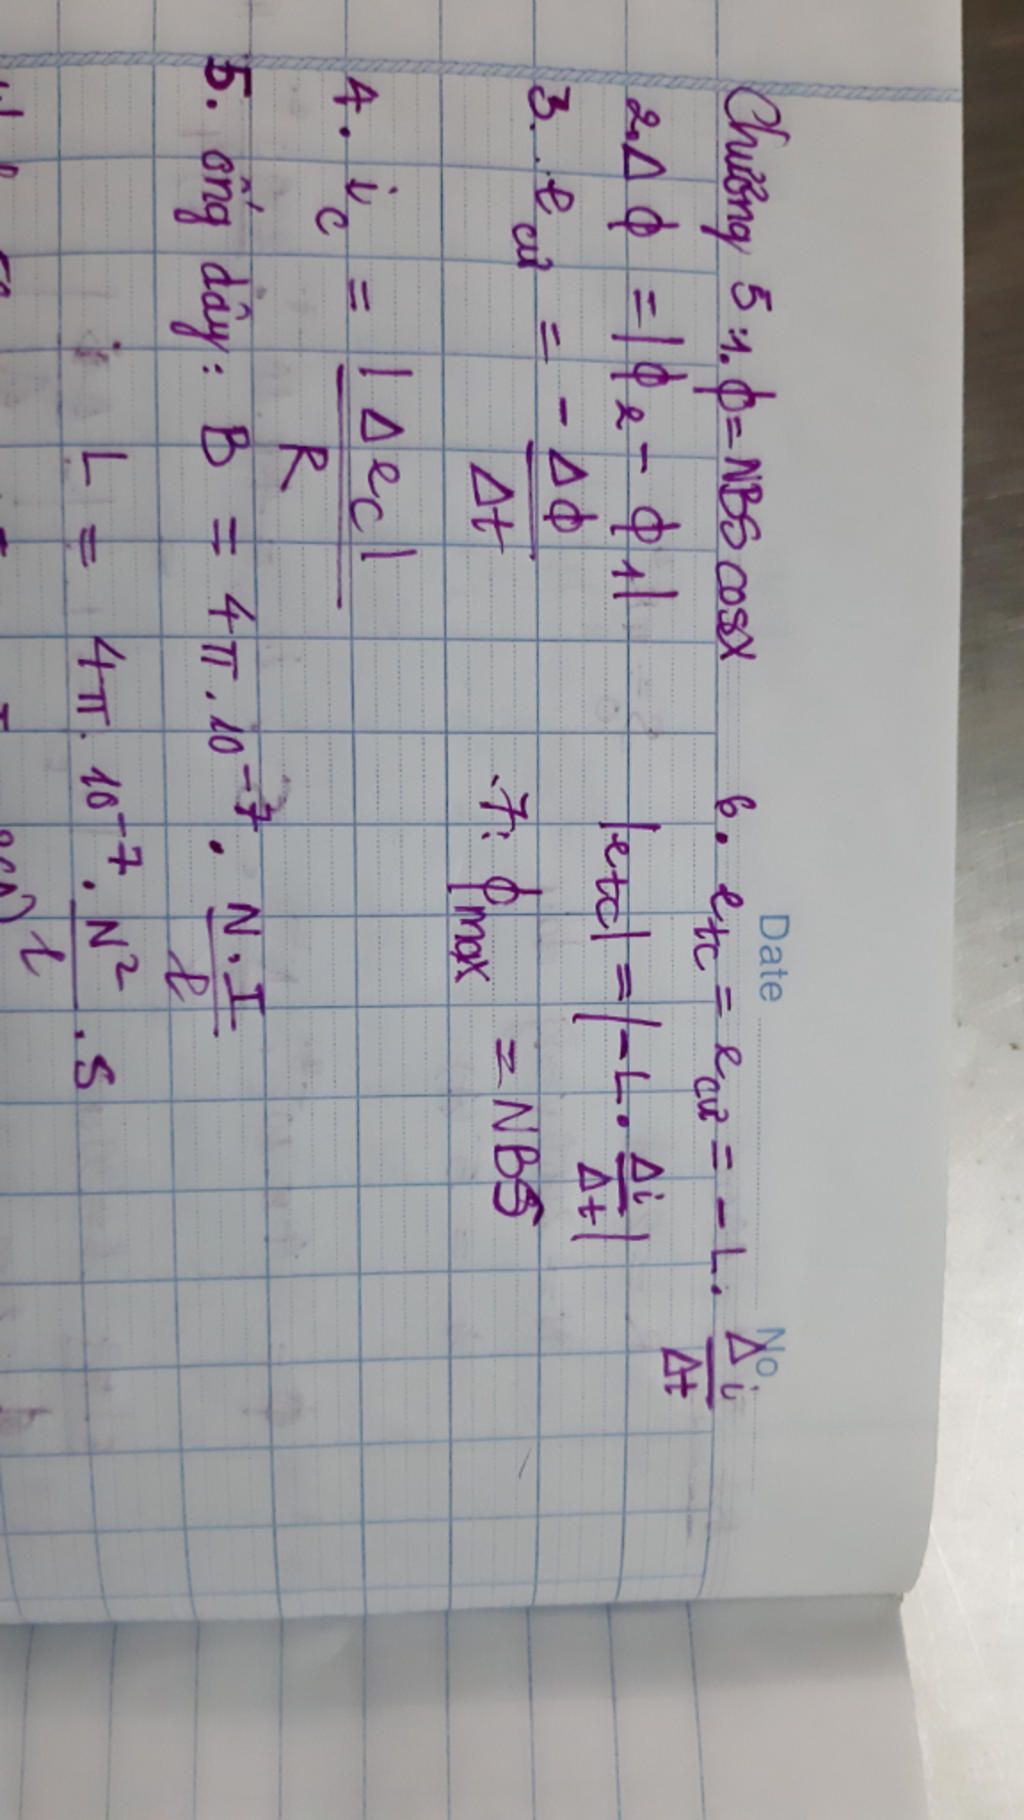 Date
No.
Chương 5 1. ϕ = NBS cosx
2. Δϕ = |ϕ2 - ϕ1|
3. ecư = - Δϕ/Δt
4. ic = |Δec|/R
5. ống dây: B = 4π.10^-7 . N.I/l
L = 4π.10^-7 . N²/l . S
6. etc = ecư = - L. Δi/Δt
|etc| = |- L. Δi/Δt|
7. ϕmax = NBS